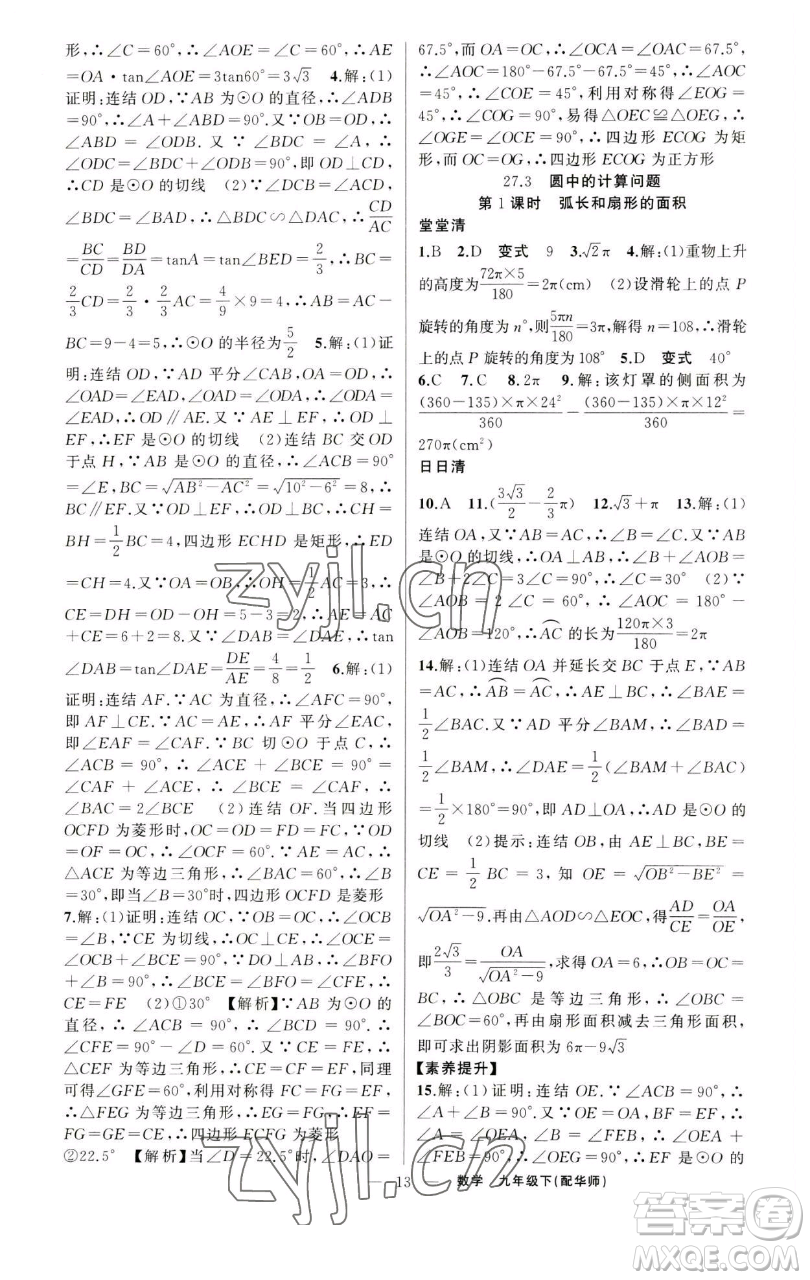 形,∴∠C=60°,∴∠AOE=∠C=60°,∴AE
=OA·tan∠AOE=3tan60°=3√3 4.解:(1)
证明:连结OD,∵AB为⊙O的直径,∴∠ADB
=90°,∴∠A+∠ABD=90°.又∵OB=OD,∴
∠ABD=∠ODB.又∵∠BDC=∠A,∴
∠ODC=∠BDC+∠ODB=90°,即OD⊥CD,∴
∴CD是⊙O的切线 (2)∵∠DCB=∠ACD,
∠BDC=∠BAD,∴△BDC∽△DAC,∴CD/AC
=BC/CD=BD/DA=tanA=tan∠BED=2/3,∴BC=
2/3CD=2/3·2/3AC=4/9×9=4,∴AB=AC-
BC=9-4=5,∴⊙O的半径为5/2 5.解:(1)证
明:连结OD,∵AD平分∠CAB,OA=OD,∴
∠OAD=∠EAD,∠OAD=∠ODA,∴∠ODA=
∠EAD,∴OD∥AE.又∵AE⊥EF,∴OD⊥
EF,∴EF是⊙O的切线 (2)连结BC交OD
于点H,∵AB是⊙O的直径,∴∠ACB=90°
=∠E,BC=√(AB²-AC²)=√(10²-6²)=8,∴
BC∥EF.又∵OD⊥EF,∴OD⊥BC,∴CH=
BH=1/2BC=4,四边形ECHD是矩形,∴ED
=CH=4.又∵OA=OB,∴OH=1/2AC=3,∴
CE=DH=OD-OH=5-3=2,∴AE=AC
+CE=6+2=8.又∵∠DAB=∠DAE,∴tan
∠DAB=tan∠DAE=DE/AE=4/8=1/2 6.解:(1)
证明:连结AF.∵AC为直径,∴∠AFC=90°,
即AF⊥CE.又∵AC=AE,∴AF平分∠EAC,
即∠EAF=∠CAF.∵BC切⊙O于点C,∴
∠ACB=90°,∴∠ACE+∠BCE=90°=
∠CAF+∠ACE,∴∠BCE=∠CAF,∴
∠BAC=2∠BCE (2)连结OF.当四边形
OCFD为菱形时,OC=OD=FD=FC,∵OD
=OF=OC,∴∠OCF=60°.∵AE=AC,∴
△ACE为等边三角形,∴∠BAC=60°,∴∠B
=30°,即当∠B=30°时,四边形OCFD是菱形
7.解:(1)证明:连结OC,∵OB=OC,∴∠OCB
=∠B,∵CE为切线,∴OC⊥CE,∴∠OCE=
∠OCB+∠BCE=90°.∵DO⊥AB,∴∠BFO
+∠B=90°,∴∠BCE=∠BFO=∠CFE,∴
CE=FE (2)①30° 【解析】∵AB为⊙O的
直径,∴∠ACB=90°,∴∠BCD=90°,∴
∠CFE=90°-∠D=60°.又∵CE=FE,∴
∠CEF=60°,△CEF是等边三角形,同理
可得∠GFE=60°,利用对称得FC=FG=EF,
∴△FEG为等边三角形,∴EG=FE,∴EF=
FG=GE=CE,∴四边形ECFG为菱形
②22.5° 【解析】当∠D=22.5°时,∠DAO=
67.5°,而OA=OC,∴∠OCA=∠OAC=67.5°,
∴∠AOC=180°-67.5°-67.5°=45°,∴∠AOC
=45°,∴∠COE=45°,利用对称得∠EOG=
45°,∴∠COG=90°,易得△OEC≌△OEG,∴
∠OGE=∠OCE=90°,∴四边形ECOG为矩
形,而OC=OG,∴四边形ECOG为正方形
27.3 圆中的计算问题
第1课时 弧长和扇形的面积
堂堂清
1.B 2.D 变式 9 3.√2π 4.解:(1)重物上升
的高度为72π×5/180=2π(cm) (2)设滑轮上的点P
旋转的角度为n°,则5πn/180=3π,解得n=108,∴滑轮
上的点P旋转的角度为108° 5.D 变式 40°
6.C 7.C 8.2π 9.解:该灯罩的侧面积为
(360-135)×π×24²/360-(360-135)×π×12²/360=
270π(cm²)
日日清
10.A 11.(3√3/2-2/3π) 12.√3+π 13.解:(1)
连结OA,又∵AB=AC,∴∠B=∠C.又∵AB是
⊙O的切线,∴OA⊥AB,∴∠B+∠AOB=
∠B+2∠C=3∠C=90°,∴∠C=30° (2)∵
∠AOB=2∠C=60°,∴∠AOC=180°-
∠AOB=120°,∴AC的长为120π×3/180=2π
14.解:(1)连结OA并延长交BC于点E,∵AB
=AC,∴AB=AC,∴AE⊥BC,∴∠BAE=
1/2∠BAC.又∵AD平分∠BAM,∴∠BAD=
1/2∠BAM,∴∠DAE=1/2(∠BAM+∠BAC)
=1/2×180°=90°,即AD⊥OA,∴AD是⊙O的
切线 (2)提示:连结OB,由AE⊥BC,BE=
CE=1/2BC=3,知OE=√(OB²-BE²)=
√(OA²-9).再由△AOD∽△EOC,得AD/CE=OA/OE,
即2√3/3=OA/√(OA²-9),求得OA=OB=OC=
BC,∴△OBC是等边三角形,∴∠OBC=
∠BOC=60°,再由扇形面积减去三角形面积,
即可求出阴影面积为6π-9√3
【素养提升】
15.解:(1)证明:连结OE.∵∠ACB=90°,∴
∠A+∠B=90°,又∵OA=OE,BF=EF,∴
∠A=∠OEA,∠B=∠FEB,∴∠OEA+
∠FEB=90°,∴∠OEF=180°-(∠OEA+
13 数学 九年级下(配华师)
zyjl.cn
zyjl.cn
答案圈
MXQE.COM